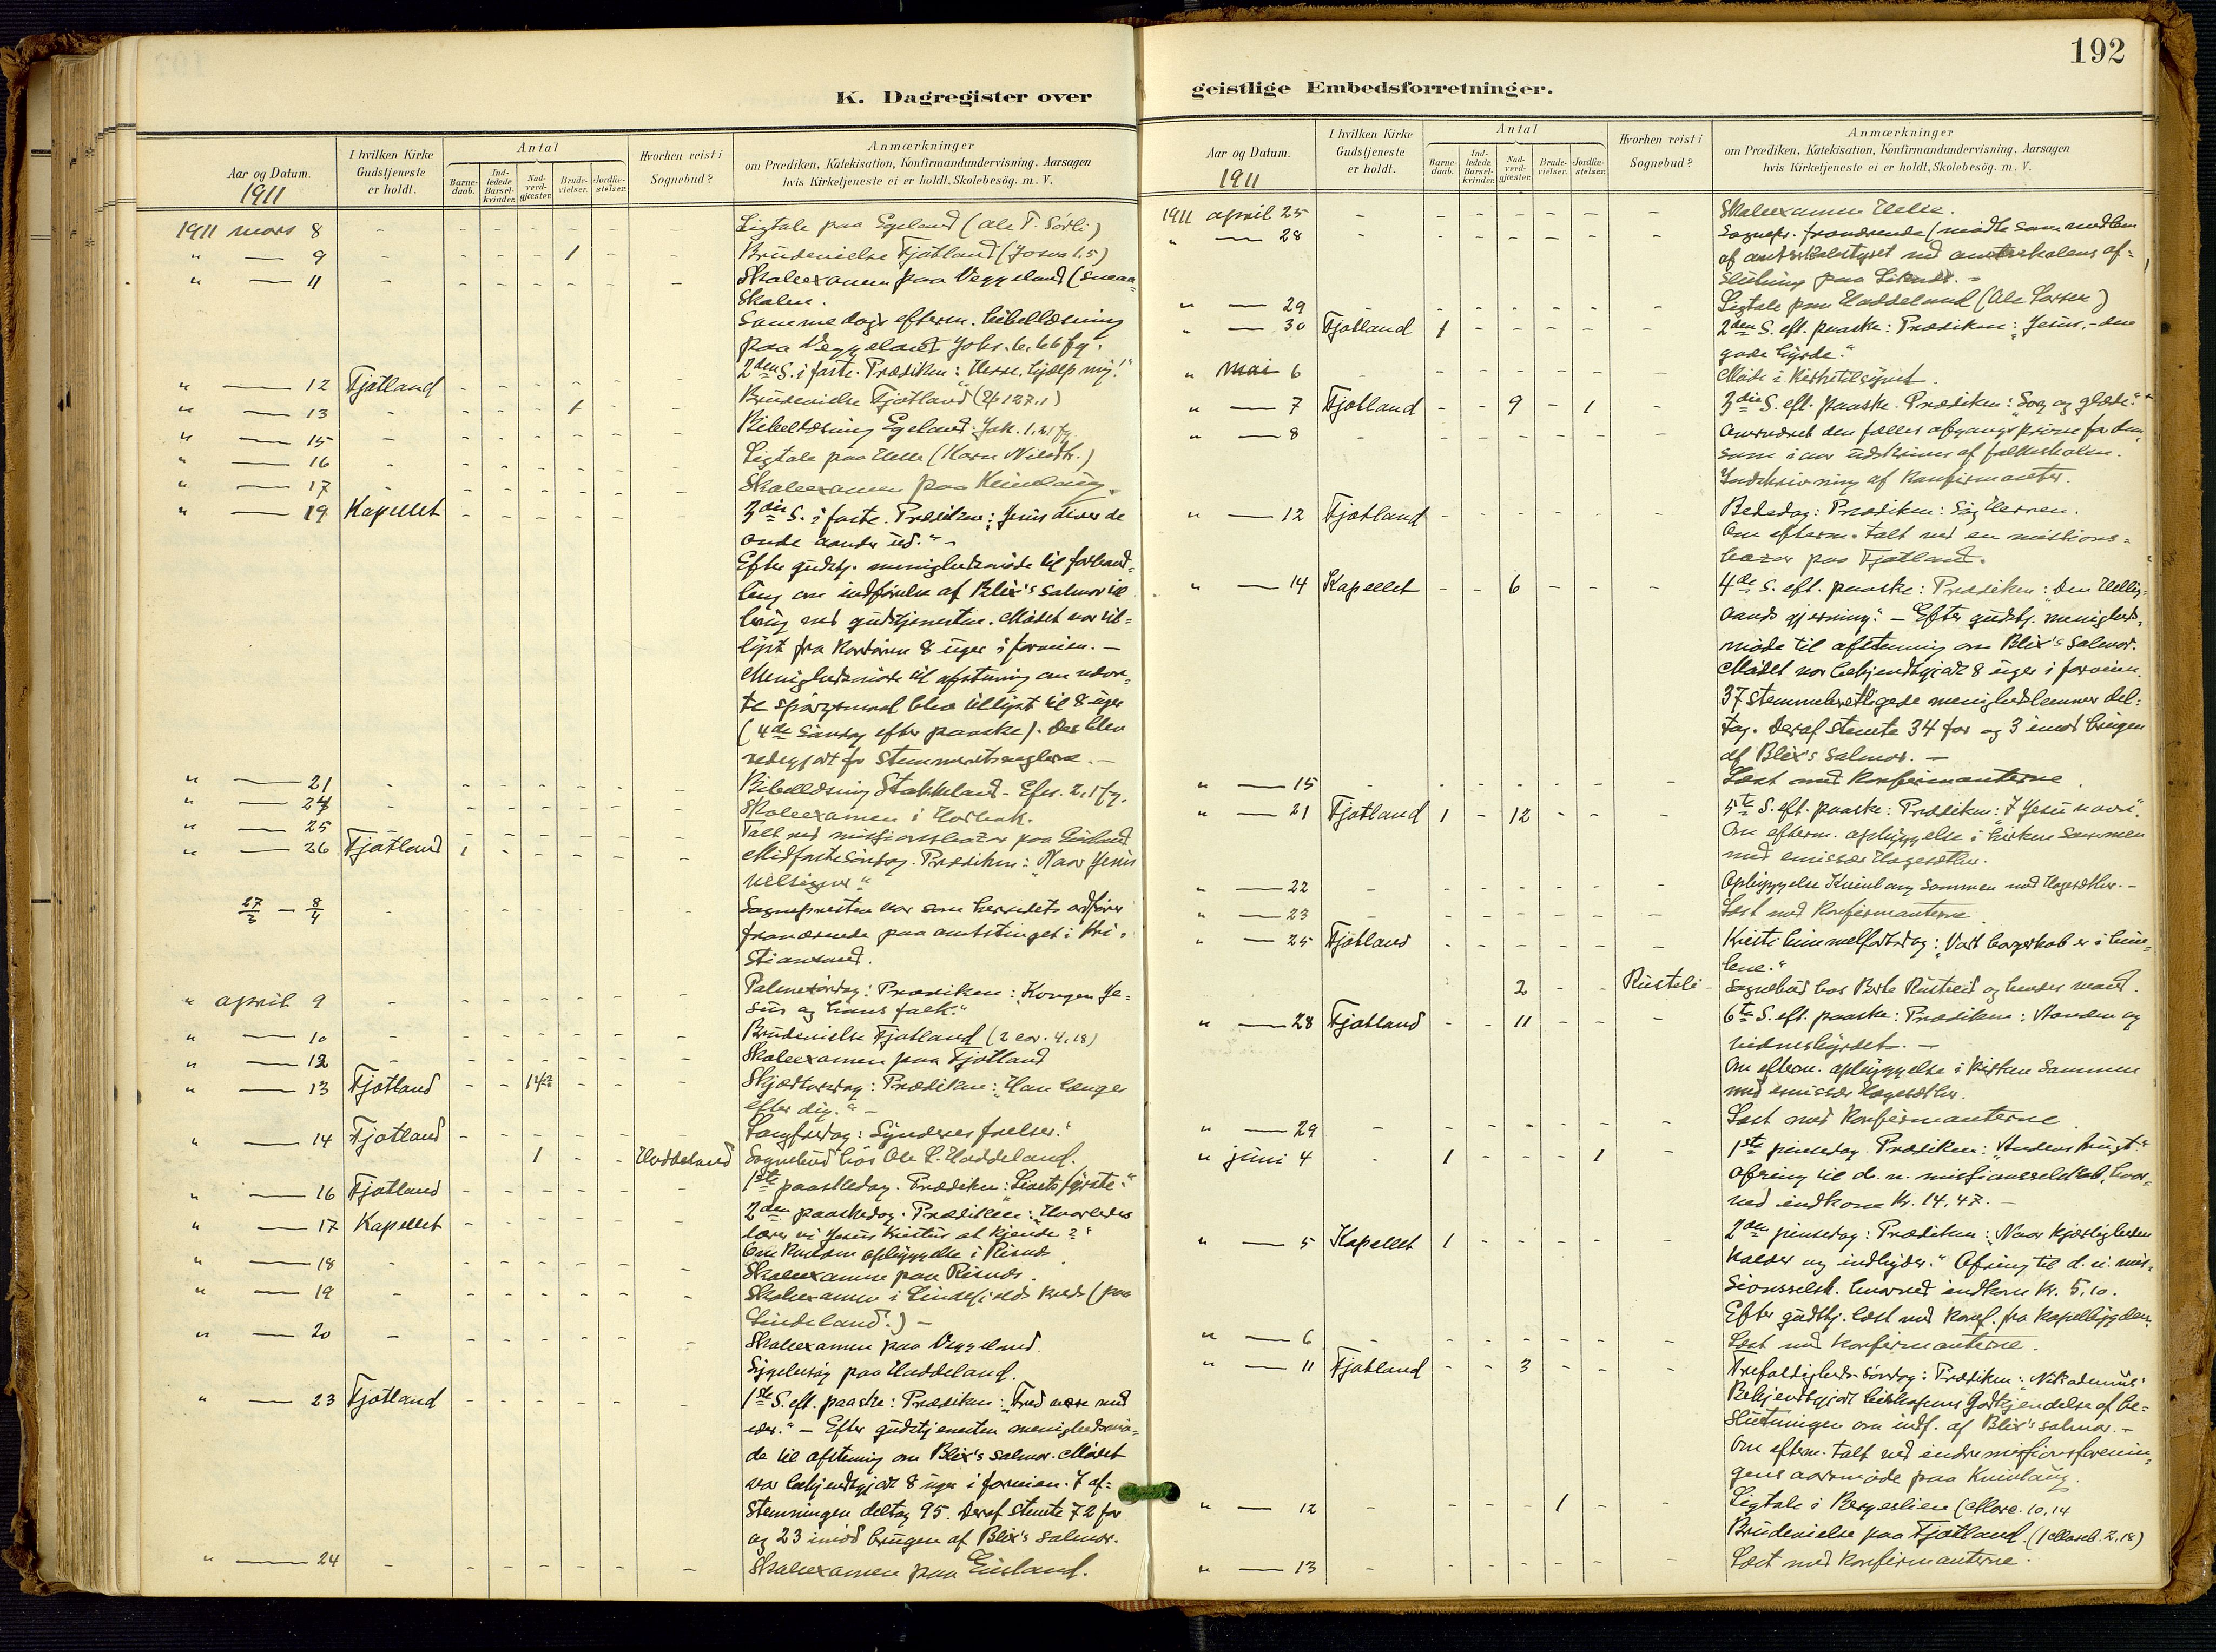 192
K. Dagregister over
geistlige Embedsforretninger.
Aar og Datum.
1911
I hvilken Kirke Gudstjeneste er holdt.
Antal
Barne-daab.
Ind-ledede Barsel-kvinder.
Nad-verd-gjæster.
Brude-vielser.
Jordfæ-stelser.
Hvorhen reist i Sognebud?
Anmærkninger
om Prædiken, Katekisation, Konfirmandundervisning. Aarsagen
hvis Kirketjeneste ei er holdt, Skolebesög. m. V.
1911 mars 8 - - - - - - - Ligtale paa Egeland (Ole T. Sörli)
" — 9 - - - - 1 - - Brudevielse Fjotland (Josva 1.5)
" — 11 - - - - - - - Skoleexamen paa Veggeland (smaa-
skolen.
Samme dags efterm. bibellæsning
paa Veggeland Johs. 6. 66 fg.
" — 12 Fjotland - - - - - - 2den S. i faste. Prædiken: "Herre, hjælp mig!"
" — 13 - - - - 1 - - Brudevielse Fjotland (127,1)
" — 15 - - - - - - - Bibellæsning Egeland. Joh. 1.
" — 16 - - - - - - - Ligtale paa Helle (Karn Nilsdtr.)
" — 17 - - - - - - - Skoleexamen paa Kvinlaug.
" — 19 Kapellet - - - - - - 3die S. i faste. Prædiken: "Jesus driver de
onde aander ud." -
Efter gudstj. menighedsmøde til forhand-
ling om indførelse af Blix's salmer til
brug ved gudstjenesten. Mødet var til-
lyst fra kordøren 8 uger i forveien. -
Menighedsmøde til afstemning om nævn-
te spørgsmaal blev tillyst til 8 uger
(4de Søndag efter paaske). Der blev
redegjort for stemmeretsreglerne. -
" — 21 - - - - - - - Bibellæsning Stakkeland - Efes. 2, 1 fg.
" — 24 - - - - - - - Skoleexamen i
" — 25 - - - - - - - Talt ved missionsbazar paa
" — 26 Fjotland 1 - - - - - Midfastesöndag. Prædiken: "Naar Jesus
velsigner"
27/3 — 8/4 - - - - - - - Sognepresten var som herredets ordfører
fraværende paa amtstinget i Kri-
stiansand.
" april 9 - - - - - - - Palmesøndag: Prædiken: "Kongen Je-
sus og hans folk."
" — 10 - - - - - - - Brudevielse Fjotland (2 cor. 4, 18)
" — 12 - - - - - - - Skoleexamen paa Fjotland
" — 13 Fjotland - - 14 - - - Skjærtorsdag: Prædiken: "Han længes
efter dig." -
" — 14 Fjotland - - - - - - Langfredag: Synderes frelser."
1 - - Haddeland Sognebud hos Ole L. Haddeland.
" — 16 Fjotland - - - - - - 1ste paaskedag. Prædiken: "Livets fyrste."
" — 17 Kapellet - - - - - - 2den paaskedag. Prædiken: "Hvorledes
lærer vi Jesus Kristus at kjende?"
Om kvelden opbyggelse i Risnes
" — 18 - - - - - - - Skoleexamen paa Risnes.
" — 19 - - - - - - - Skoleexamen i Lindefjelds kreds (paa
Lindeland.) -
" — 20 - - - - - - - Skoleexamen paa Veggeland.
Sygebesøg paa Haddeland.
" — 23 Fjotland - - - - - - 1ste S. eft. paaske: Prædiken: "Fred være med
eder." - Efter gudstjenesten menighedsmø-
de til afstemning om Blix's salmer. Mødet
var bekjendtgjort 8 uger i forveien. I af-
stemningen deltog 95. Deraf stemte 72 for
og 23 imod brugen af Blix's salmer.
" — 24 - - - - - - - Skoleexamen paa Eiesland.
Aar og Datum.
1911
I hvilken Kirke Gudstjeneste er holdt.
Antal
Barne-daab.
Ind-ledede Barsel-kvinder.
Nad-verd-gjæster.
Brude-vielser.
Jordfæ-stelser.
Hvorhen reist i Sognebud?
Anmærkninger
om Prædiken, Katekisation, Konfirmandundervisning, Aarsagen
hvis Kirketjeneste ei er holdt, Skolebesög. m. V.
1911 april 25 - - - - - - - Skoleexamen Helle.
" — 28 - - - - - - - Sognepr. fraværende (mødte som medlem
af amtsskolestyret ved amtsskolens af-
slutning paa Liknes. -
" — 29 - - - - - - - Ligtale paa Haddeland (Ole Larsen)
" — 30 Fjotland 1 - - - - - 2den S. eft. paaske: Prædiken: "Jesus, - den
gode hyrde."
" mai 6 - - - - - - - Møde i kirketilsynet.
" — 7 Fjotland - - 9 - 1 - 3die S. eft. paaske. Prædiken: "Sorg og glæde."
" — 8 - - - - - - - Overværet den fælles afgangsprøve for dem,
som i aar udskrives af folkeskolen.
Indskrivning af konfirmanter.
" — 12 Fjotland - - - - - - Bededag: Prædiken: Søg Herren.
Om efterm. talt ved en missions-
bazar paa Fjotland.
" — 14 Kapellet - - 6 - - - 4de S. eft. paaske: Prædiken: "Den Hellig-
aands gjerning." - Efter gudstj. menigheds-
møde til afstemning om Blix's salmer.
Mødet var bekjendtgjort 8 uger i forveien.
37 stemmeberettigede menighedslemmer del-
tog. Deraf stemte 34 for og 3 imod brugen
af Blix's salmer. -
" — 15 - - - - - - - Læst med konfirmanterne.
" — 21 Fjotland 1 - 12 - - - 5te S. eft. paaske: Prædiken: "I Jesu navn".
Om efterm. opbyggelse i kirken sammen
med emissær Hagesæther.
" — 22 - - - - - - - Opbyggelse Kvinlaug sammen med Hagesæther. -
" — 23 - - - - - - - Læst med konfirmanterne
" — 25 Fjotland - - - - - - Kristi himmelfartsdag: "Vort borgerskab er i him-
lene."
2 - - Risteli - Sognebud hos Berte Risteli og hendes mand.
" — 28 Fjotland - - 11 - - - 6te S. eft. paaske: Prædiken: "Aanden og
vidnesbyrdet. -
Om efterm. opbyggelse i kirken sammen
med emissær Hagesæther.
" — 29 - - - - - - - Læst med konfirmanterne.
" juni 4 - 1 - - - 1 - 1ste pinsedag. Prædiken: "Aandens frugt."
Ofring til d. n. missionsselskab, hvor-
ved indkom kr. 14,47. -
" — 5 Kapellet 1 - - - - - 2den pinsedag: Prædiken: "Naar kjærligheden
kalder og indbyder." Ofring til d. n. mis-
sionsselsk. hvorved indkom kr. 5,10.
Efter gudstj. læst med konf. fra kapelbygden.
" — 6 - - - - - - - Læst med konfirmanterne.
" — 11 Fjotland - - 3 - - - Trefoldigheds-søndag: Prædiken: "Nikodemus"
Bekjendtgjort biskopens godkjendelse af be-
slutningen om indf. af Blix's salmer. -
Om efterm. talt ved indremissionsforenin-
gens aarsmøde paa Kvinlaug.
" — 12 - - - - 1 - - Ligtale i Bergeslien (Marc. 10, 14
Brudevielse paa Fjotland. (1 Moseb. 2, 18)
" — 13 - - - - - - - Læst med konfirmanterne.